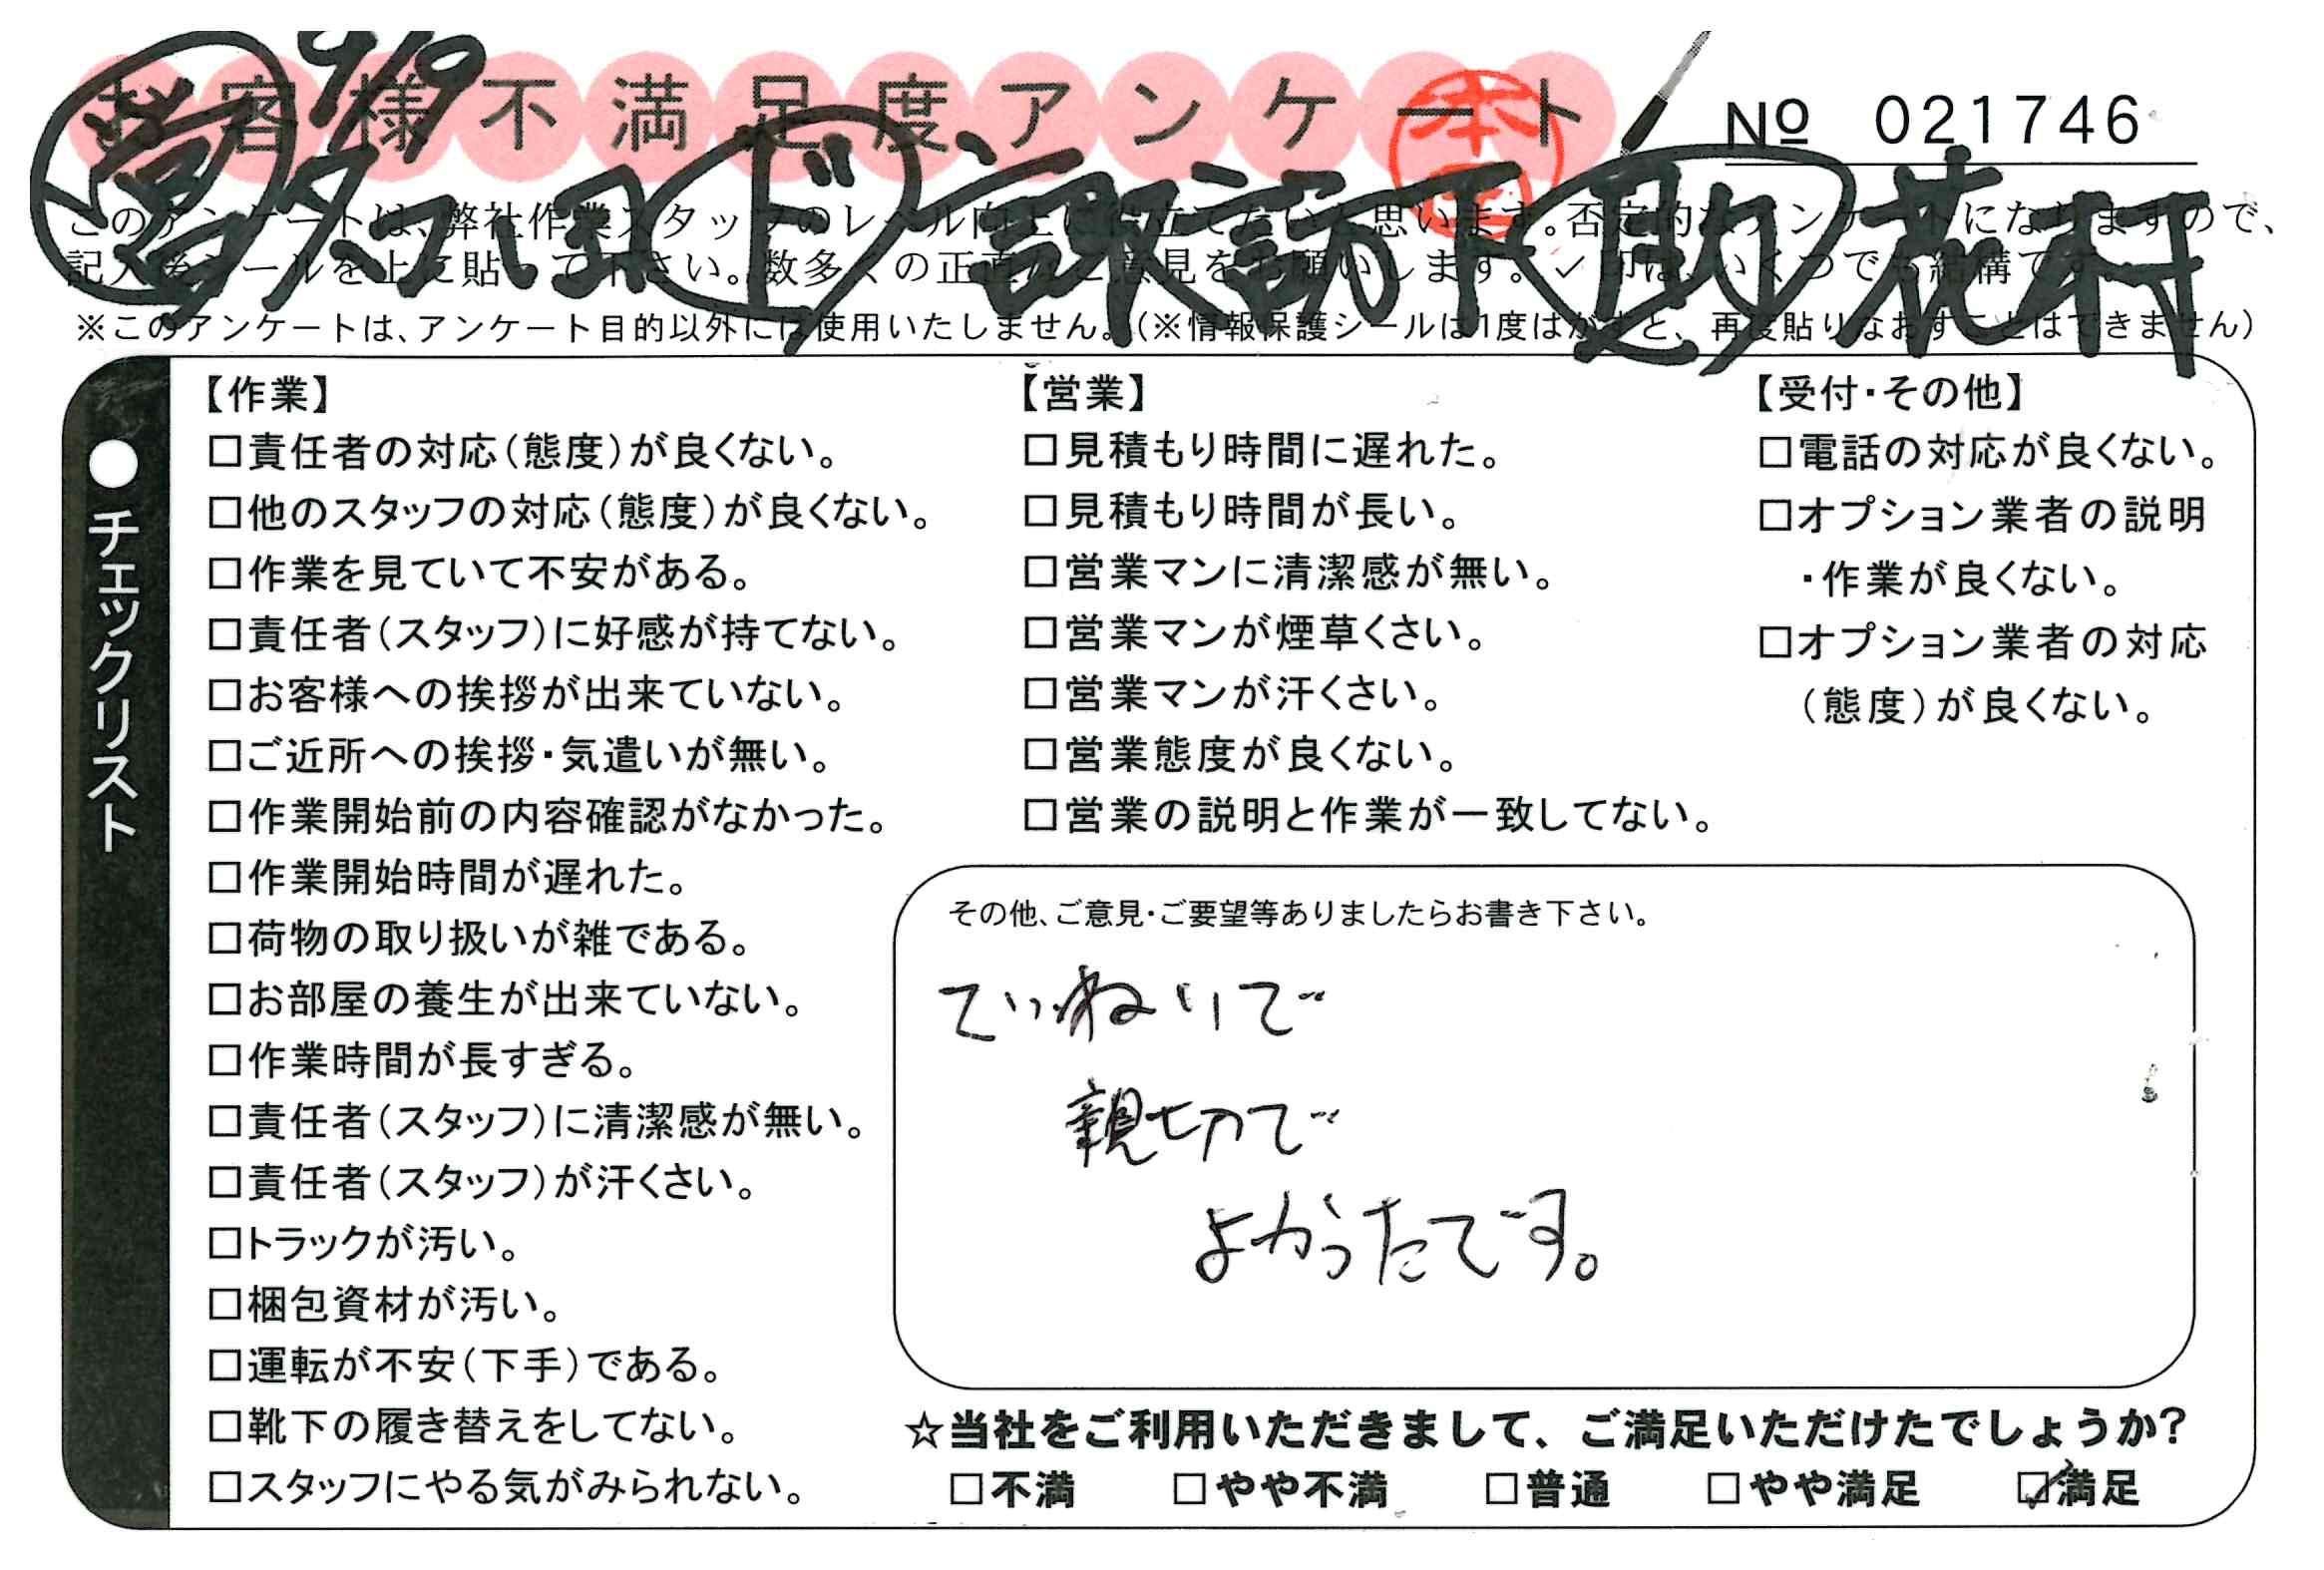 お客様不満足度アンケート
№ 021746
4/9
営 ド 諏訪下 助 花村
このアンケートは、弊社作業スタッフのレベル向上に役立てたいと思います。否定的なアンケートになりますので、
記入後シールを上に貼って下さい。数多くの正直なご意見をお願いします。✓印は、いくつでも結構です。
※このアンケートは、アンケート目的以外には使用いたしません。(※情報保護シールは1度はがすと、再度貼りなおすことはできません)
●チェックリスト
【作業】
□責任者の対応(態度)が良くない。
□他のスタッフの対応(態度)が良くない。
□作業を見ていて不安がある。
□責任者(スタッフ)に好感が持てない。
□お客様への挨拶が出来ていない。
□ご近所への挨拶・気遣いが無い。
□作業開始前の内容確認がなかった。
□作業開始時間が遅れた。
□荷物の取り扱いが雑である。
□お部屋の養生が出来ていない。
□作業時間が長すぎる。
□責任者(スタッフ)に清潔感が無い。
□責任者(スタッフ)が汗くさい。
□トラックが汚い。
□梱包資材が汚い。
□運転が不安(下手)である。
□靴下の履き替えをしてない。
□スタッフにやる気がみられない。
【営業】
□見積もり時間に遅れた。
□見積もり時間が長い。
□営業マンに清潔感が無い。
□営業マンが煙草くさい。
□営業マンが汗くさい。
□営業態度が良くない。
□営業の説明と作業が一致してない。
【受付・その他】
□電話の対応が良くない。
□オプション業者の説明
・作業が良くない。
□オプション業者の対応
(態度)が良くない。
その他、ご意見・ご要望等ありましたらお書き下さい。
ていねいで
親切で
よかったです。
☆当社をご利用いただきまして、ご満足いただけたでしょうか?
□不満 □やや不満 □普通 □やや満足 ☑満足